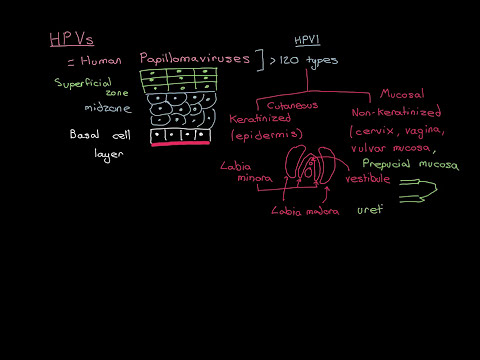 HPVs
= Human Papillomaviruses ] > 120 types
HPV1
Superficial
zone
midzone
Basal cell
layer
Cutaneous
Keratinized
(epidermis)
Mucosal
Non-keratinized
(cervix, vagina,
vulvar mucosa,
Prepucial mucosa
Labia
minora
vestibule
Labia majora
uret